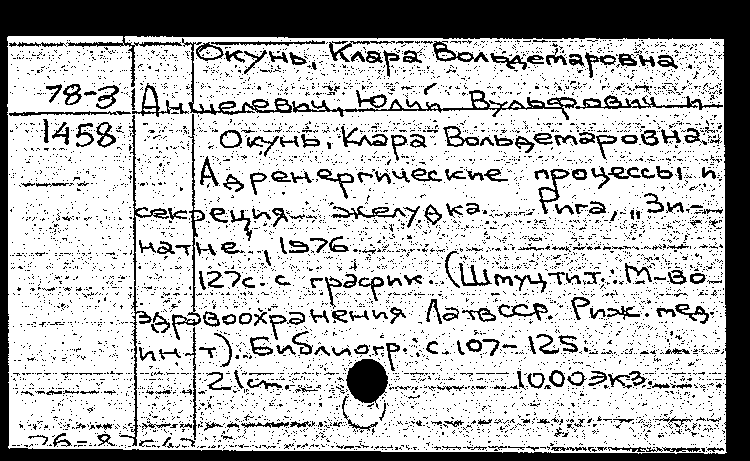 Окунь, Клара Вольдемаровна.
78-3 Аншелевич, Юлий Вульфович и
1458 Окунь, Клара Вольдемаровна
Адренергические процессы и
секреция желудка. Рига, „Зи-
натне", 1976
127с. с график. (Шмуцтит.: М-во
здравоохранения ЛатвССР. Риж. мед.
ин-т). Библиогр.: с. 107-125.
21см. 1000экз.